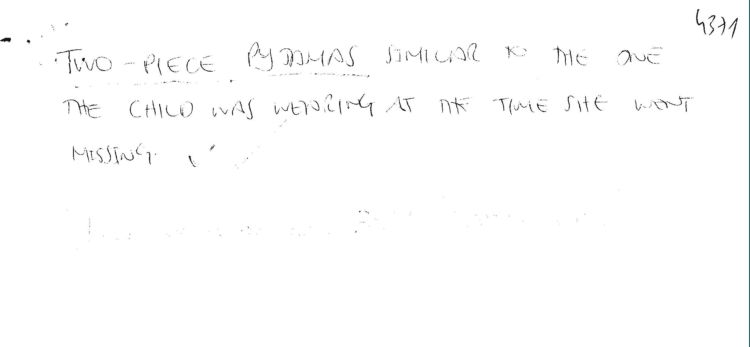 4371
TWO-PIECE PYJAMAS SIMILAR TO THE ONE
THE CHILD WAS WEARING AT THE TIME SHE WENT
MISSING.